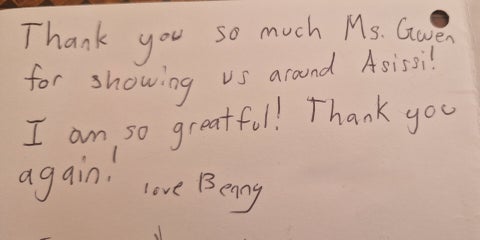 Thank you so much Ms. Gwen
for showing us around Asissi!
I am so greatful! Thank you
again!
love Benny